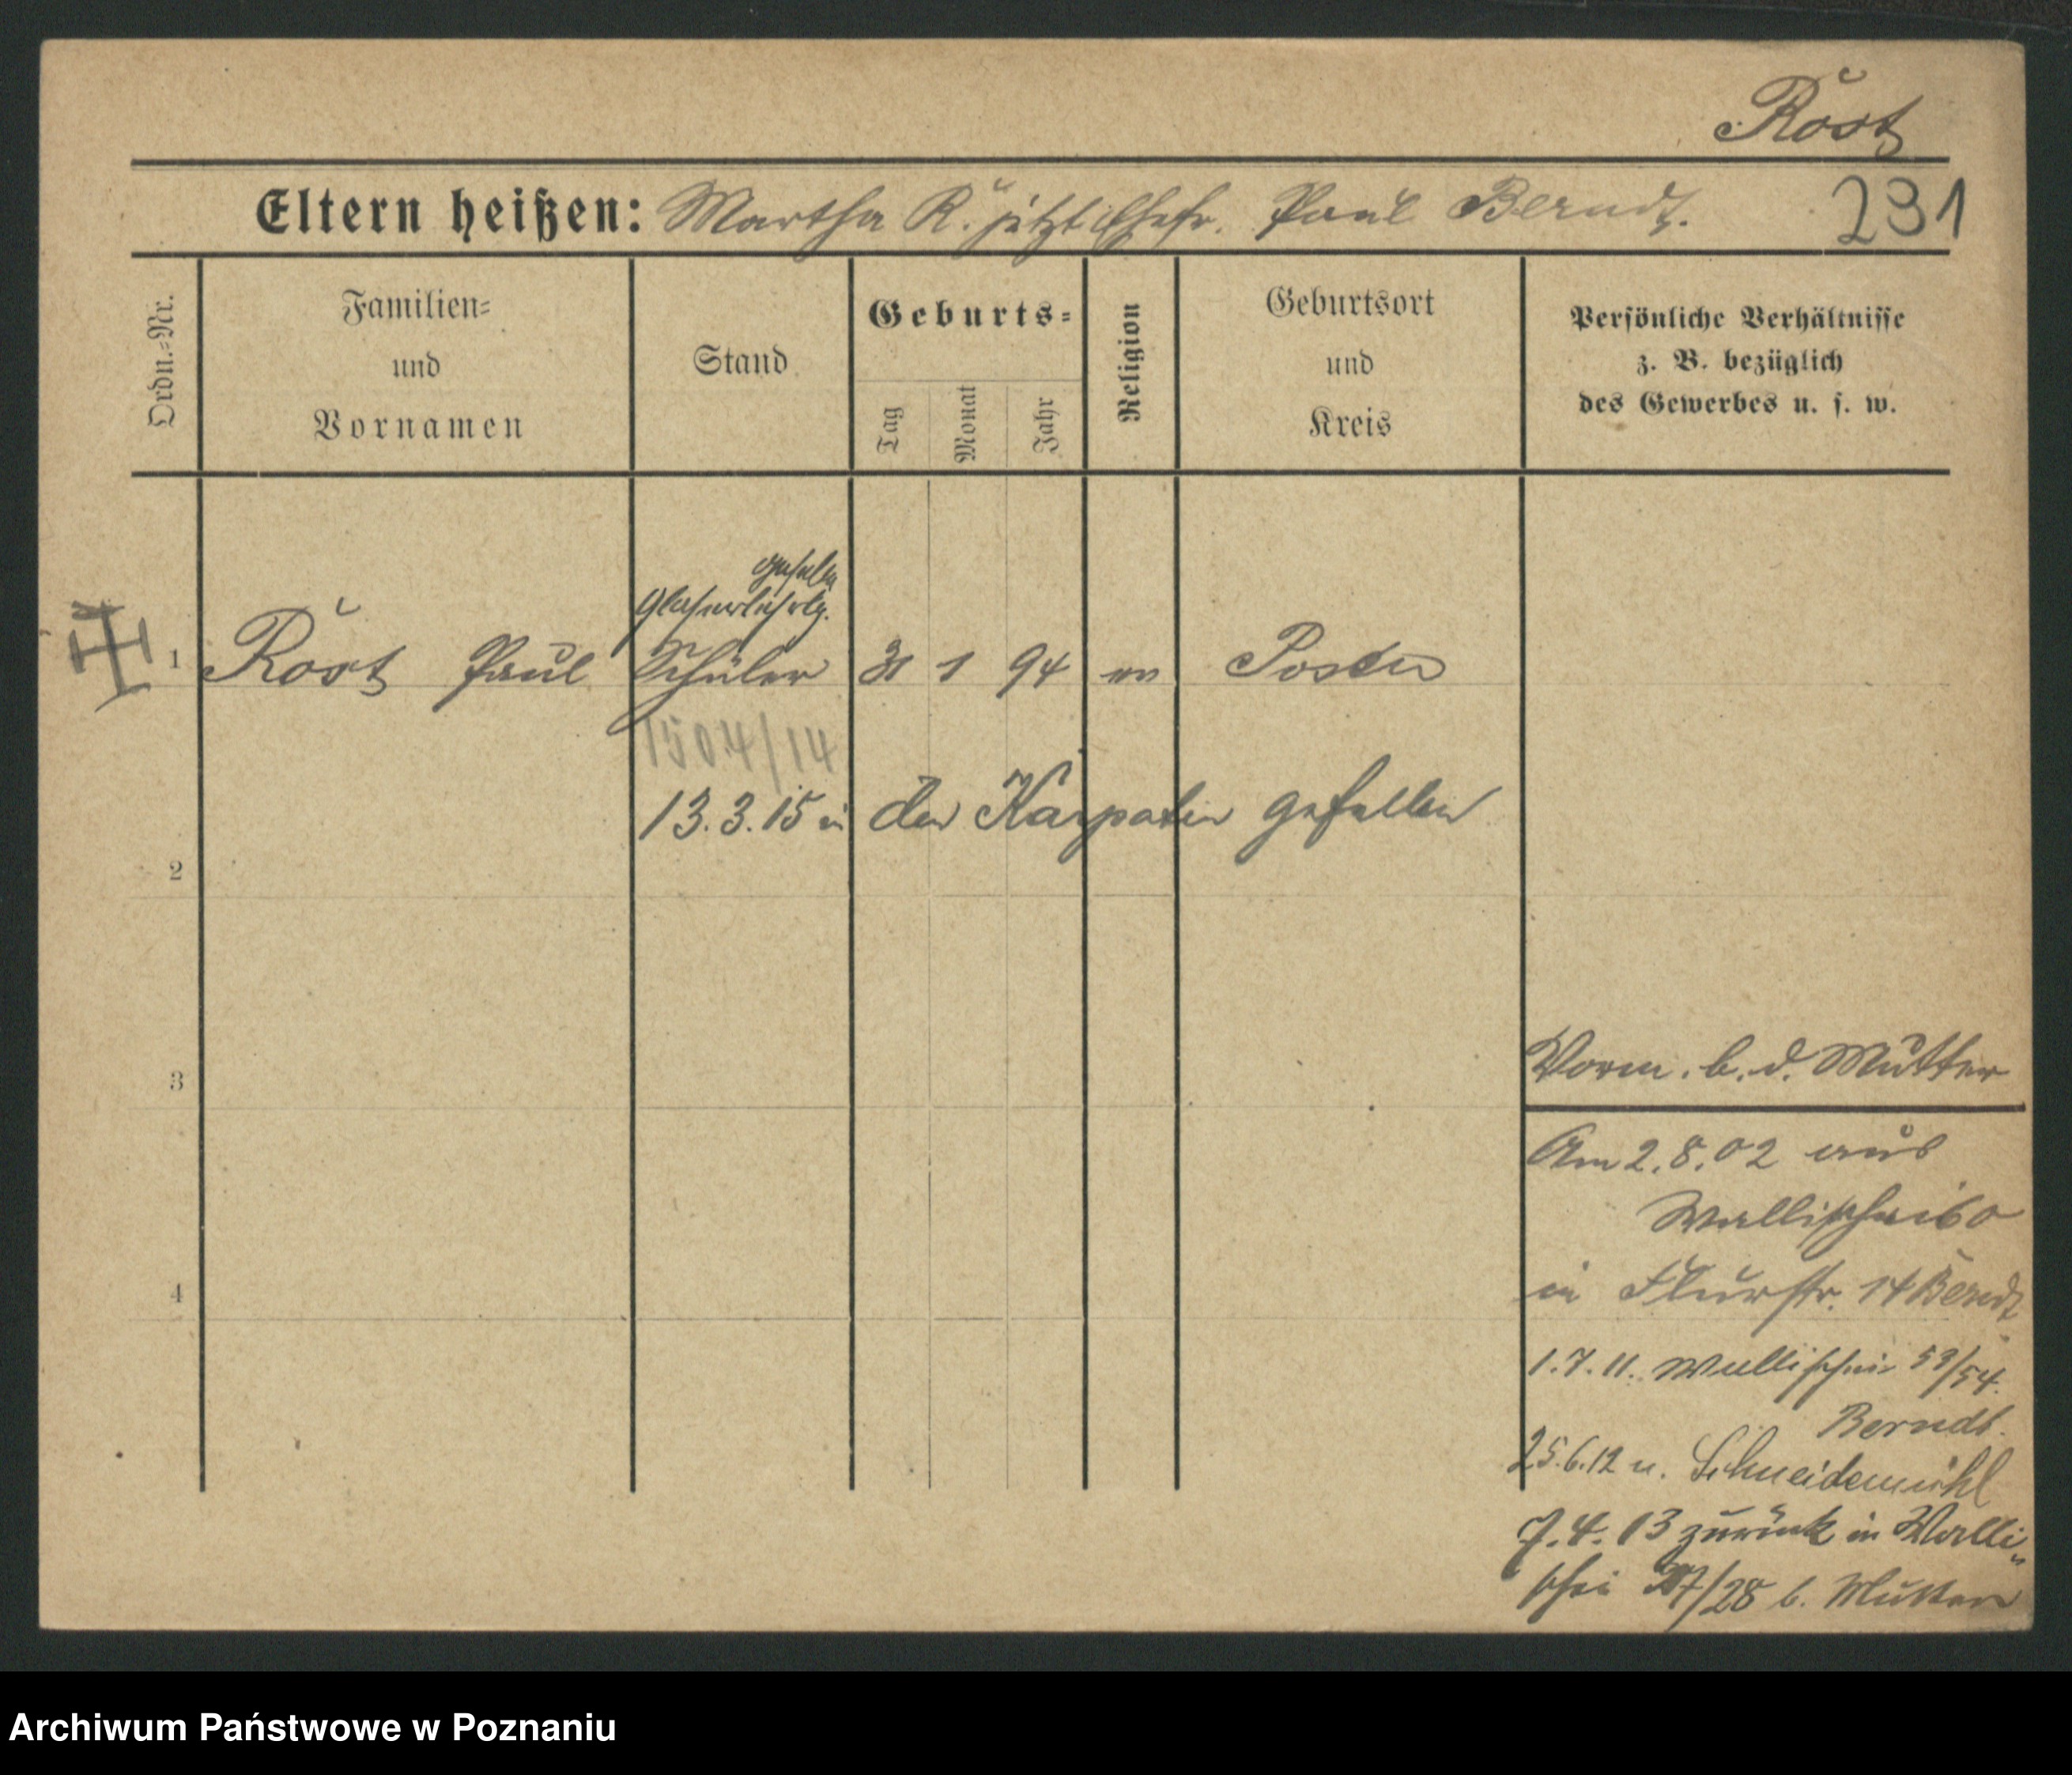 Röst
Eltern heißen: Martha R. jetzt Ehefr. Paul Berndt. 231
Ordn.-Nr.
Familien-
und
Vornamen
Stand
Geburts-
Tag
Monat
Jahr
Religion
Geburtsort
und
Kreis
Persönliche Verhältnisse
z. B. bezüglich
des Gewerbes u. s. w.
Glaserlehrlg.
1 Röst Paul Schüler 31 1 94 Posen
1504/14
13.3.15 in den Karpaten gefallen
2
3
4
Vorm. b. d. Mutter
Am 2.8.02 aus
Wallischei 60
in Flurstr. 14 Berndt
1.7.11. Wallischei 53/54.
Berndt.
25.6.12 n. Schneidemühl
7.4.13 zurück in Walli-
schei 27/28 b. Mutter
Archiwum Państwowe w Poznaniu